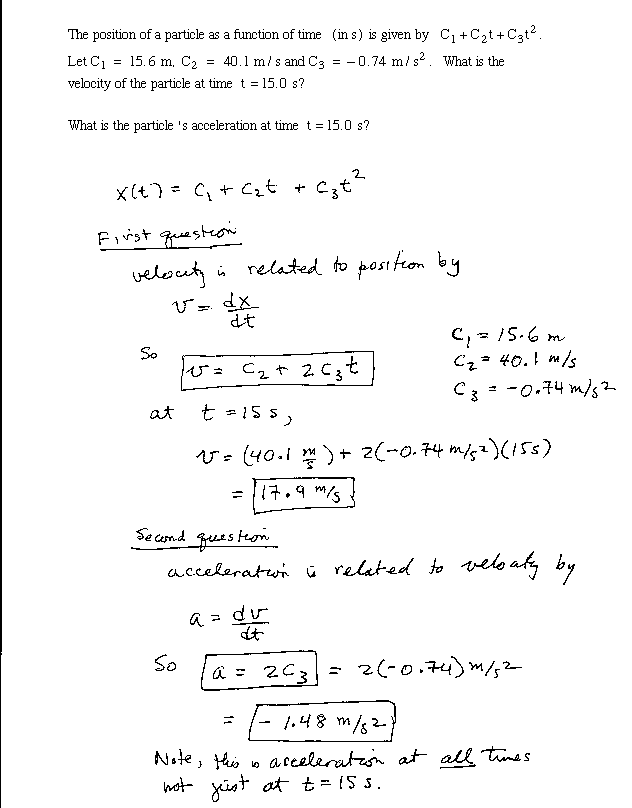 The position of a particle as a function of time (in s) is given by C₁ + C₂t + C₃t².
Let C₁ = 15.6 m, C₂ = 40.1 m/s and C₃ = −0.74 m/s². What is the
velocity of the particle at time t = 15.0 s?
What is the particle 's acceleration at time t = 15.0 s?
x(t) = C₁ + C₂t + C₃t²
First question
velocity is related to position by
v = dx/dt
C₁ = 15.6 m
So
C₂ = 40.1 m/s
v = C₂ + 2C₃t
C₃ = -0.74 m/s²
at t = 15 s,
v = (40.1 m/s) + 2(-0.74 m/s²)(15s)
= 17.9 m/s
Second question
acceleration is related to velocity by
a = dv/dt
So a = 2C₃ = 2(-0.74) m/s²
= -1.48 m/s²
Note, this is acceleration at all times
not just at t = 15 s.